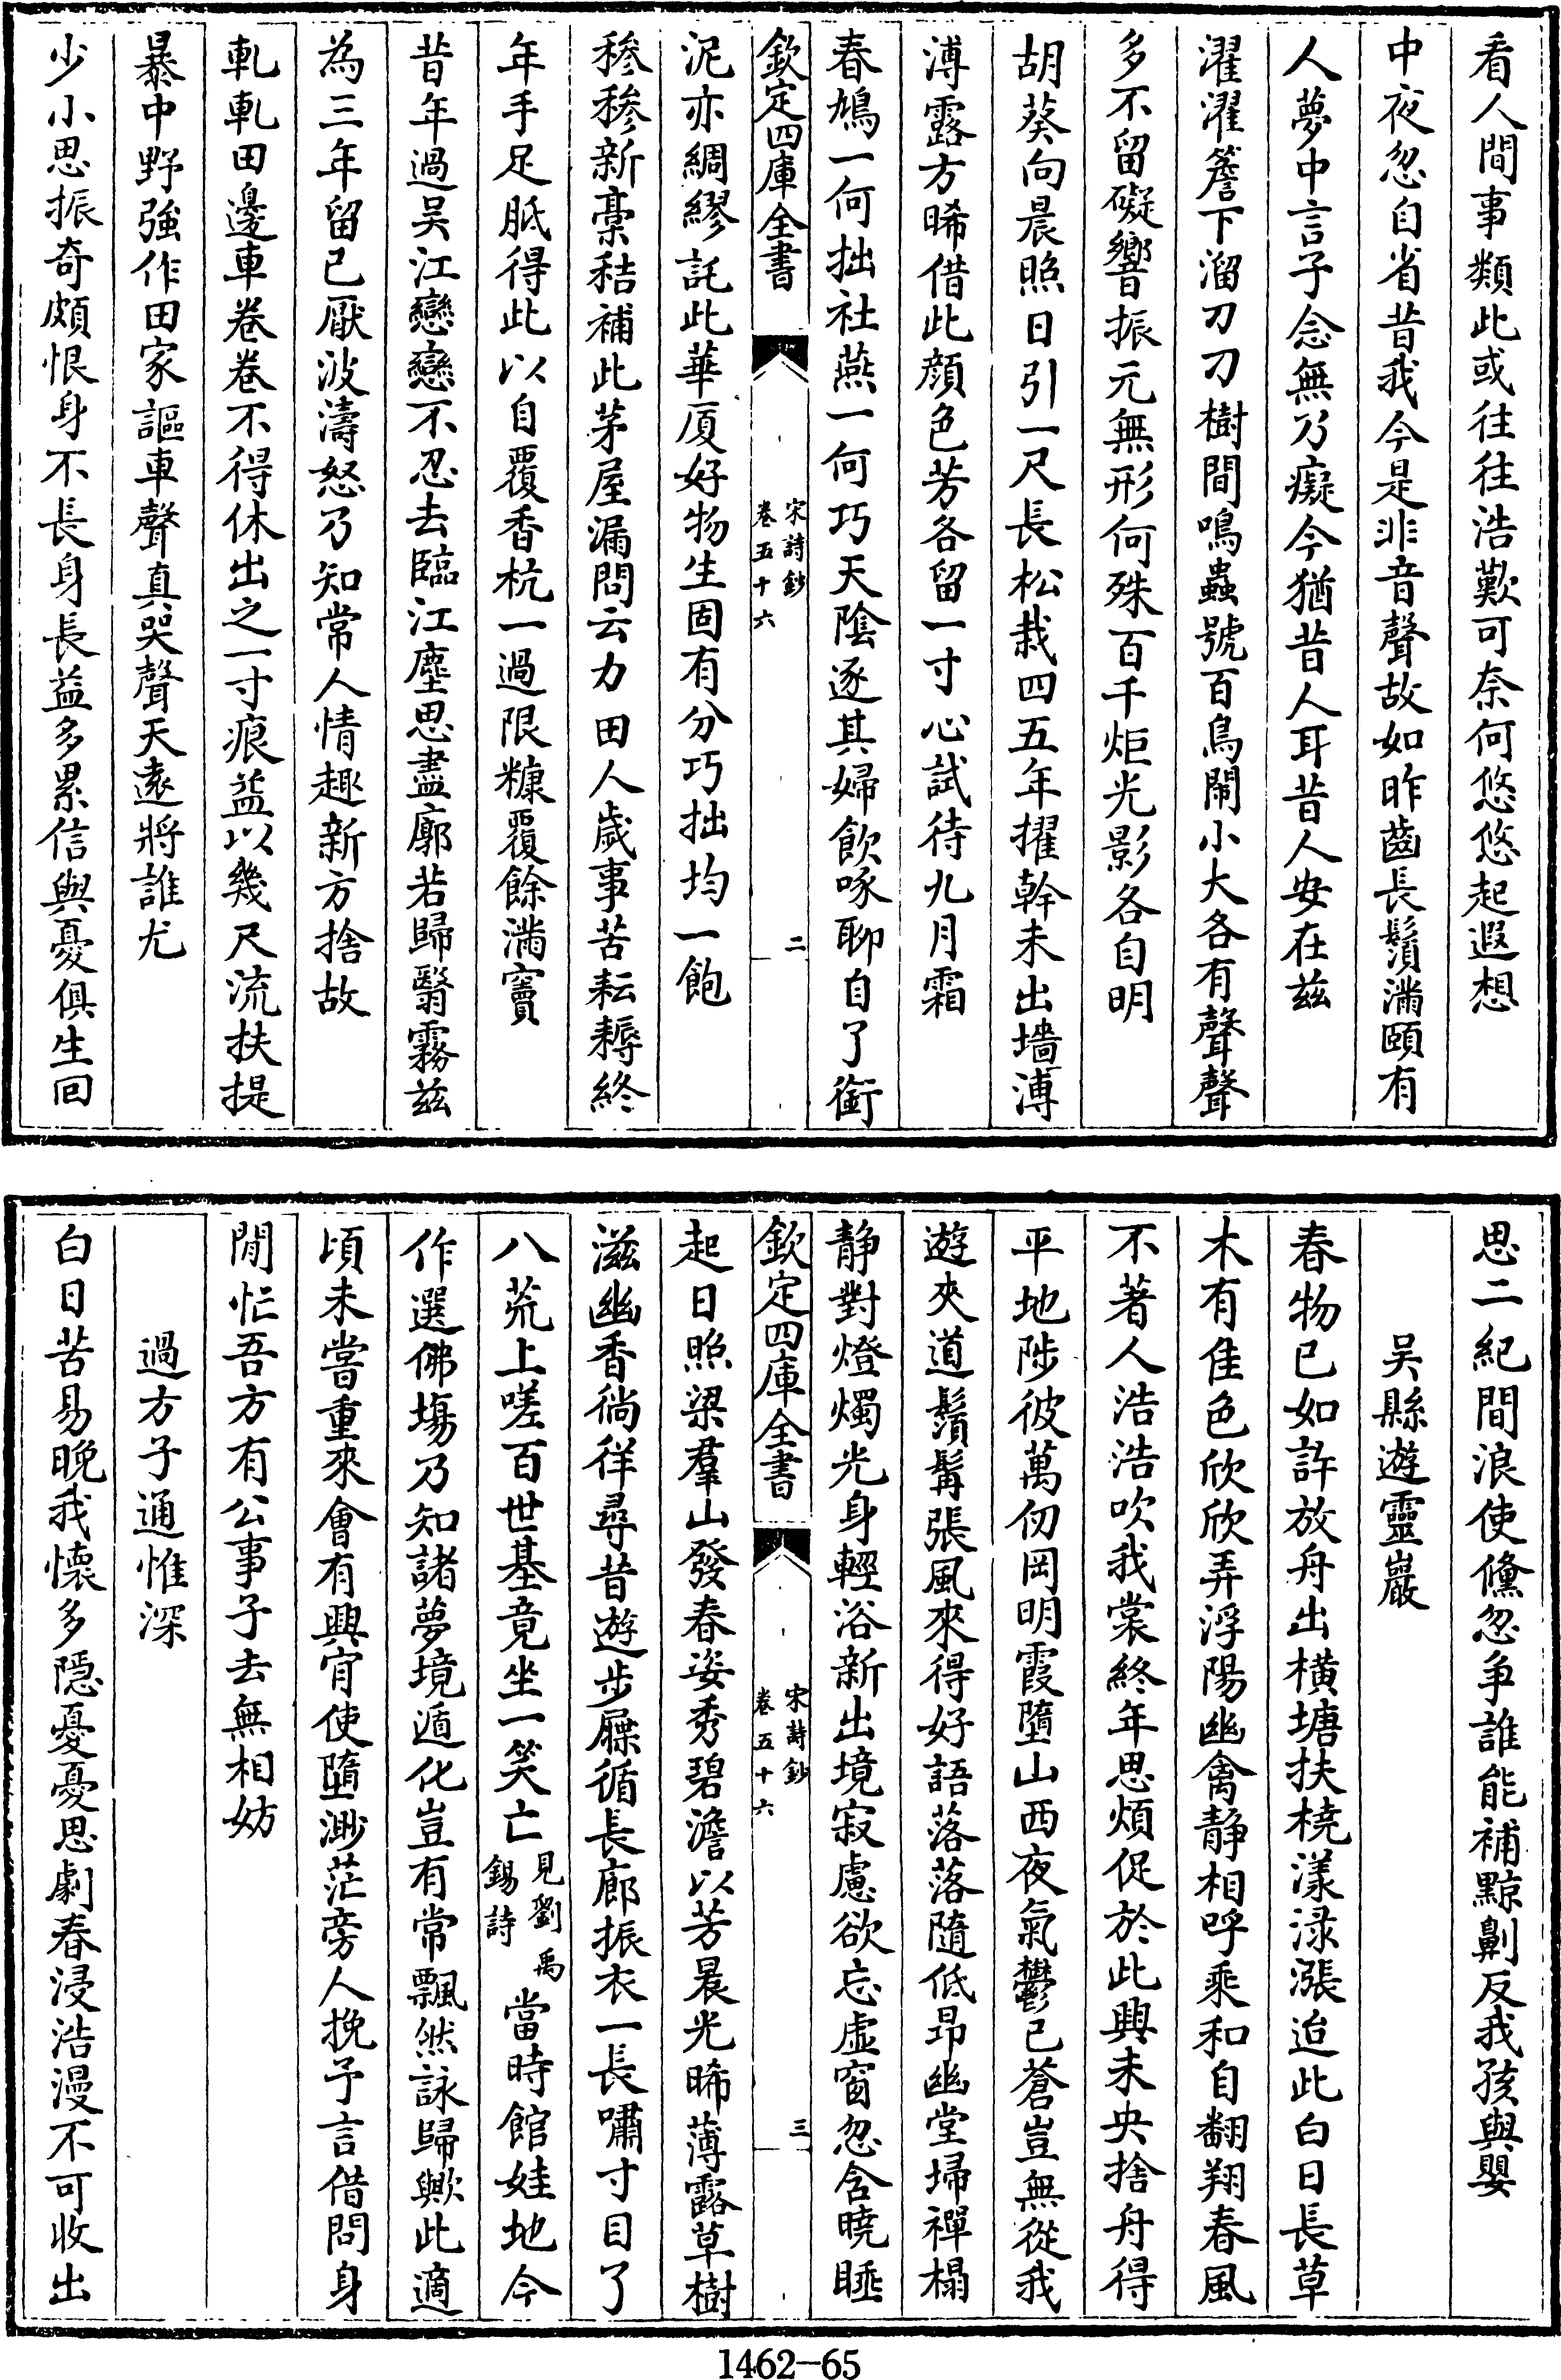 看人間事類此或往往浩歎可奈何悠悠起遐想
中夜忽自省昔我今是非音聲故如昨齒長鬚滿頤有
人夢中言子念無乃癡今猶昔人耳昔人安在兹
濯濯簷下溜刀刀樹間鳴蟲號百鳥鬧小大各有聲聲
多不留礙響振元無形何殊百千炬光影各自明
胡葵向晨照日引一尺長松栽四五年擢幹未出墻溥
溥露方晞借此顔色芳各留一寸心試待九月霜
春鳩一何拙社燕一何巧天陰逐其婦飲啄聊自了銜
欽定四庫全書
宋詩鈔
卷五十六
二
泥亦綢繆託此華厦好物生固有分巧拙均一飽
穇穇新稾秸補此茅屋漏問云力田人歲事苦耘耨終
年手足胝得此以自覆香杭一過限糠覆餘滿竇
昔年過吴江戀戀不忍去臨江塵思盡廓若歸翳霧兹
為三年留已厭波濤怒乃知常人情趣新方捨故
軋軋田邊車卷卷不得休出之一寸痕益以幾尺流扶提
暴中野強作田家謳車聲真哭聲天遠將誰尤
少小思振奇頗恨身不長身長益多累信與憂俱生回
思二紀間浪使儵忽争誰能補黥劓反我孩與嬰
吴縣遊靈巖
春物已如許放舟出横塘扶橈漾渌漲迨此白日長草
木有佳色欣欣弄浮陽幽禽静相呼乘和自翻翔春風
不著人浩浩吹我裳終年思煩促於此興未央捨舟得
平地陟彼萬仞岡明霞墮山西夜氣鬱已蒼豈無從我
遊夾道鬚髯張風來得好語落落隨低昂幽堂埽禪榻
静對燈燭光身輕浴新出境寂慮欲忘虚窗忽含曉睡
欽定四庫全書
宋詩鈔
卷五十六
三
起日照梁羣山發春姿秀碧澹以芳晨光晞薄露草樹
滋幽香徜徉尋昔遊步屧循長廊振衣一長嘯寸目了
八荒上嗟百世基竟坐一笑亡見劉禹錫詩當時館娃地今
作選佛塲乃知諸夢境遁化豈有常飄然詠歸歟此適
頃未嘗重來會有興肎使墮渺茫旁人挽予言借問身
閒忙吾方有公事子去無相妨
過方子通惟深
白日苦易晚我懷多隱憂憂思劇春浸浩漫不可收出
1462-65